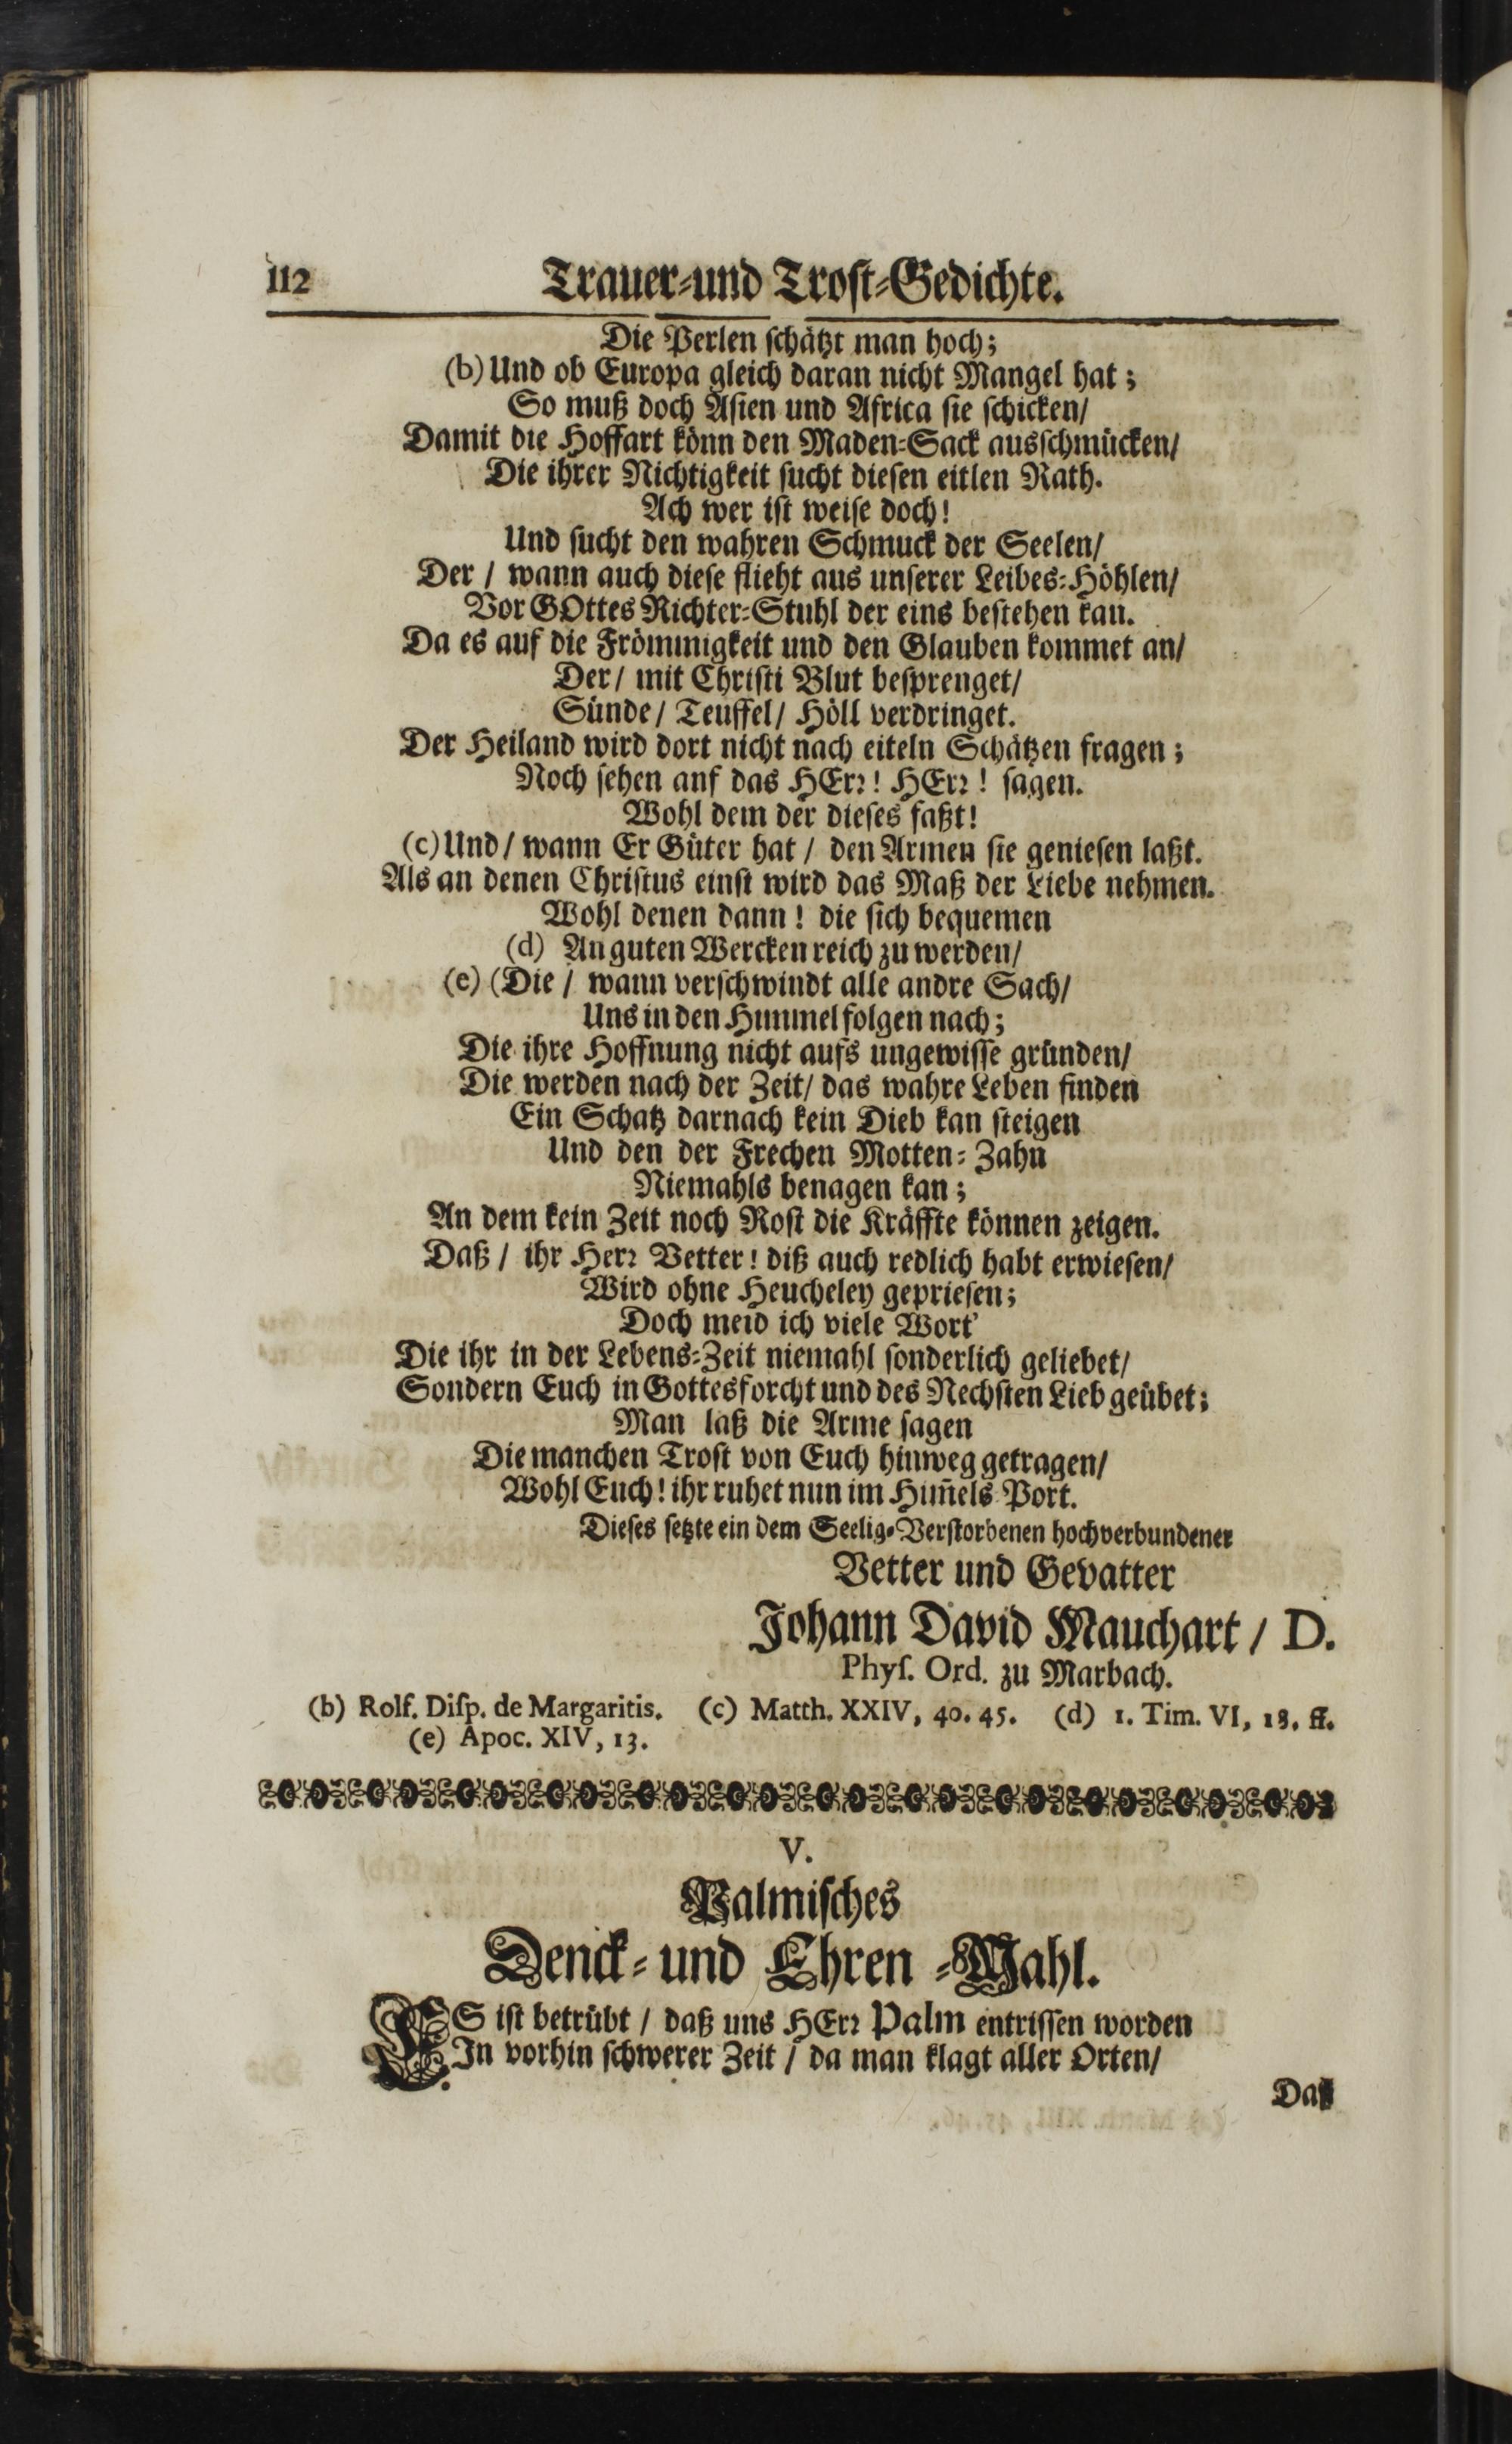 112 Trauer-und Trost-Gedichte.
Die Perlen schätzt man hoch;
(b) Und ob Europa gleich daran nicht Mangel hat;
So muß doch Asien und Africa sie schicken/
Damit die Hoffart könn den Maden-Sack ausschmücken/
Die ihrer Nichtigkeit sucht diesen eitlen Rath.
Ach wer ist weise doch!
Und sucht den wahren Schmuck der Seelen/
Der / wann auch diese flieht aus unserer Leibes-Höhlen/
Vor GOttes Richter-Stuhl der eins bestehen kan.
Da es auf die Frömmigkeit und den Glauben kommet an/
Der/ mit Christi Blut besprenget/
Sünde/ Teuffel/ Höll verdringet.
Der Heiland wird dort nicht nach eiteln Schätzen fragen;
Noch sehen anf das HErr! HErr! sagen.
Wohl dem der dieses faßt!
(c) Und/ wann Er Güter hat / den Armen sie geniesen laßt.
Als an denen Christus einst wird das Maß der Liebe nehmen.
Wohl denen dann! die sich bequemen
(d) An guten Wercken reich zu werden/
(e) (Die / wann verschwindt alle andre Sach/
Uns in den Himmel folgen nach;
Die ihre Hoffnung nicht aufs ungewisse gründen/
Die werden nach der Zeit/ das wahre Leben finden
Ein Schatz darnach kein Dieb kan steigen
Und den der Frechen Motten-Zahn
Niemahls benagen kan;
An dem kein Zeit noch Rost die Kräffte können zeigen.
Daß / ihr Herr Vetter! diß auch redlich habt erwiesen/
Wird ohne Heucheley gepriesen;
Doch meid ich viele Wort'
Die ihr in der Lebens-Zeit niemahl sonderlich geliebet/
Sondern Euch in Gottesforcht und des Nechsten Lieb geübet;
Man laß die Arme sagen
Die manchen Trost von Euch hinweg getragen/
Wohl Euch! ihr ruhet nun im Him̄els Port.
Dieses setzte ein dem Seelig-Verstorbenen hochverbundener
Vetter und Gevatter
Johann David Mauchart / D.
Phys. Ord. zu Marbach.
(b) Rolf. Disp. de Margaritis. (c) Matth. XXIV, 40. 45. (d) 1. Tim. VI, 18. ff.
(e) Apoc. XIV, 13.
V.
Palmisches
Denck- und Ehren-Mahl.
ES ist betrübt / daß uns HErr Palm entrissen worden
In vorhin schwerer Zeit / da man klagt aller Orten/
Daß